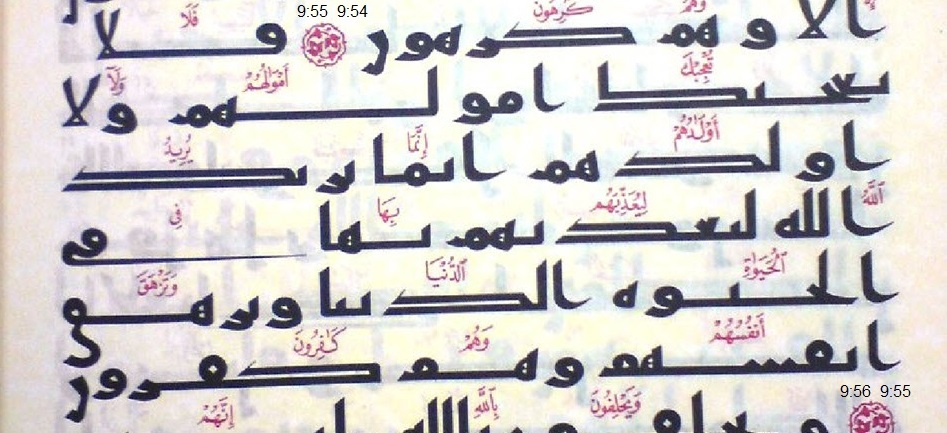 وَهُمْ كَٰرِهُونَ فَلَا
9:55 9:54
الا وهم كرهون فلا
تُعْجِبْكَ أَمْوَٰلُهُمْ وَلَآ
تعجبك امولهم ولا
أَوْلَٰدُهُمْ إِنَّمَا يُرِيدُ
اولدهم انما يريد
ٱللَّهُ لِيُعَذِّبَهُم بِهَا فِى
الله ليعذبهم بها في
ٱلْحَيَوٰةِ ٱلدُّنْيَا وَتَزْهَقَ
الحيوه الدنيا وتزهق
أَنفُسُهُمْ وَهُمْ كَٰفِرُونَ
انفسهم وهم كفرون
9:56 9:55
وَيَحْلِفُونَ بِٱللَّهِ إِنَّهُمْ
ويحلفون بالله